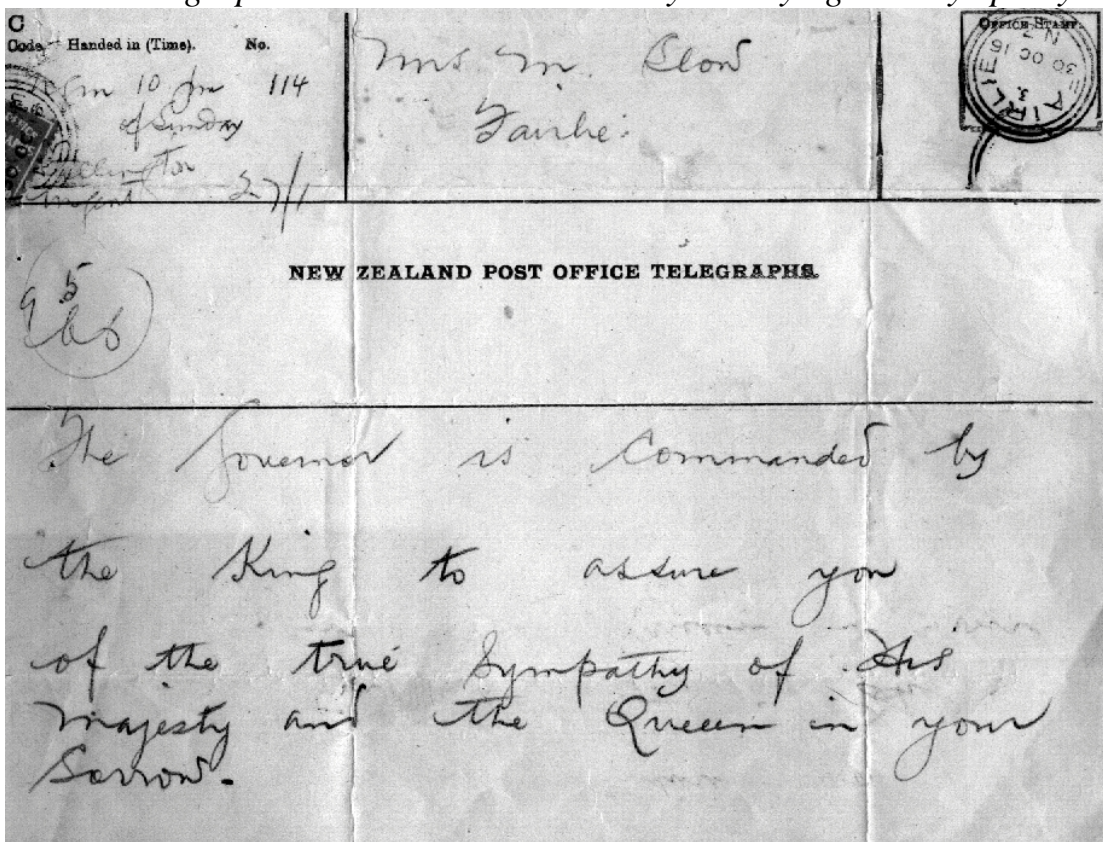 C
Code Handed in (Time). No.
10 pm 114
of Sunday
Wellington
27/1
Mrs M. Clow
Fairlie.
OFFICE STAMP.
FAIRLIE
30 OC 16
N Z
NEW ZEALAND POST OFFICE TELEGRAPHS.
5
The Governor is Commanded by
the King to assure you
of the true Sympathy of His
Majesty and the Queen in your
Sorrow.